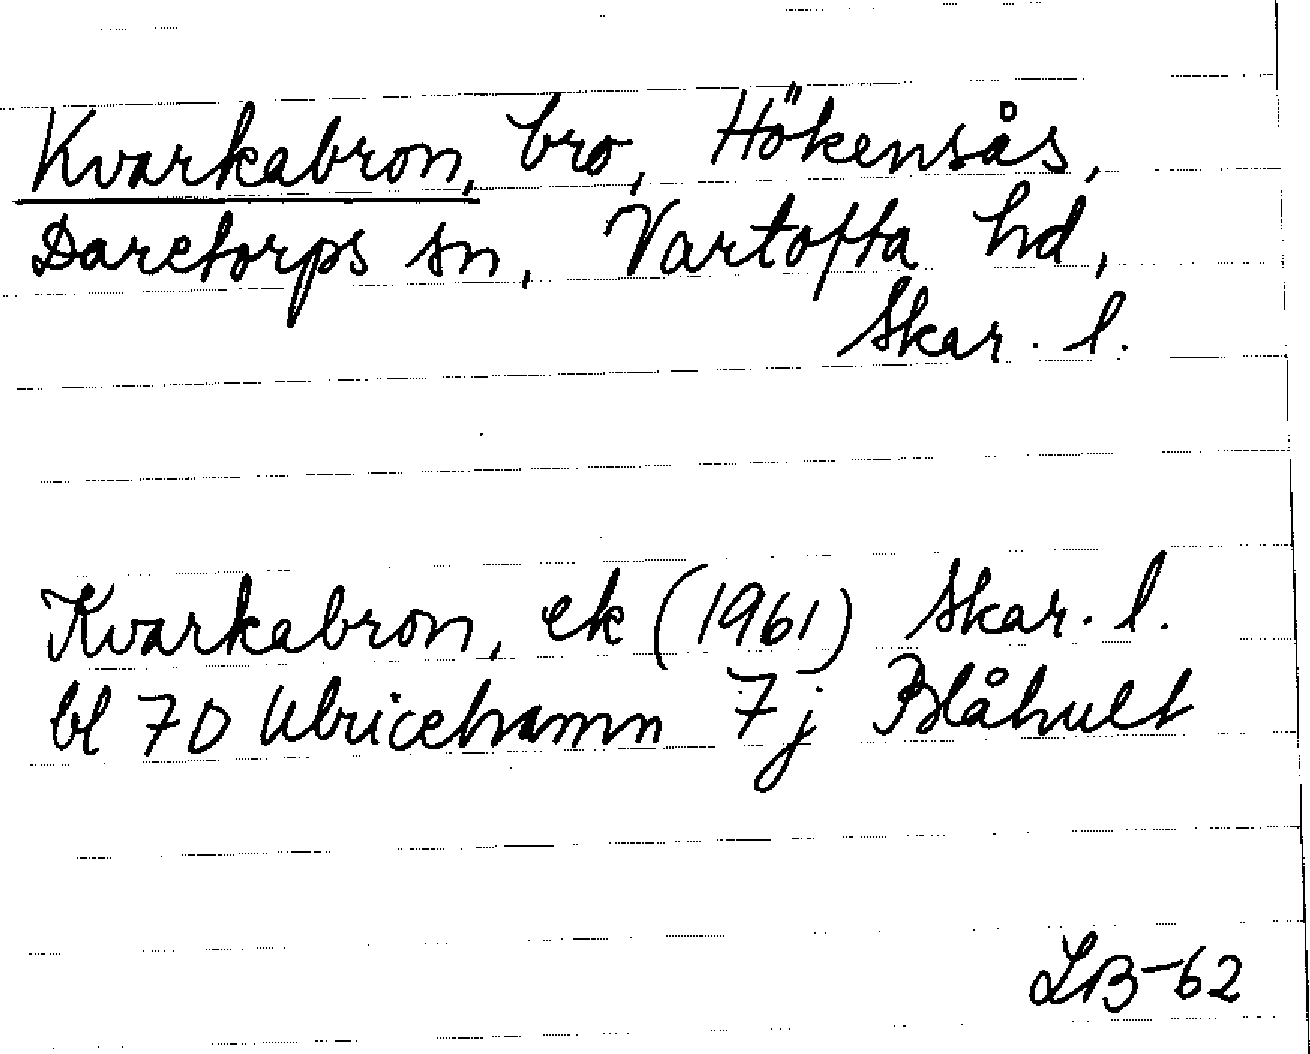 Kvarkabron, bro, Hökensås,
Daretorps sn, Vartofta hd,
Skar. l.
Kvarkabron, ek (1961) Skar. l.
bl 7D Ulricehamn 7j Blåhult
LB-62